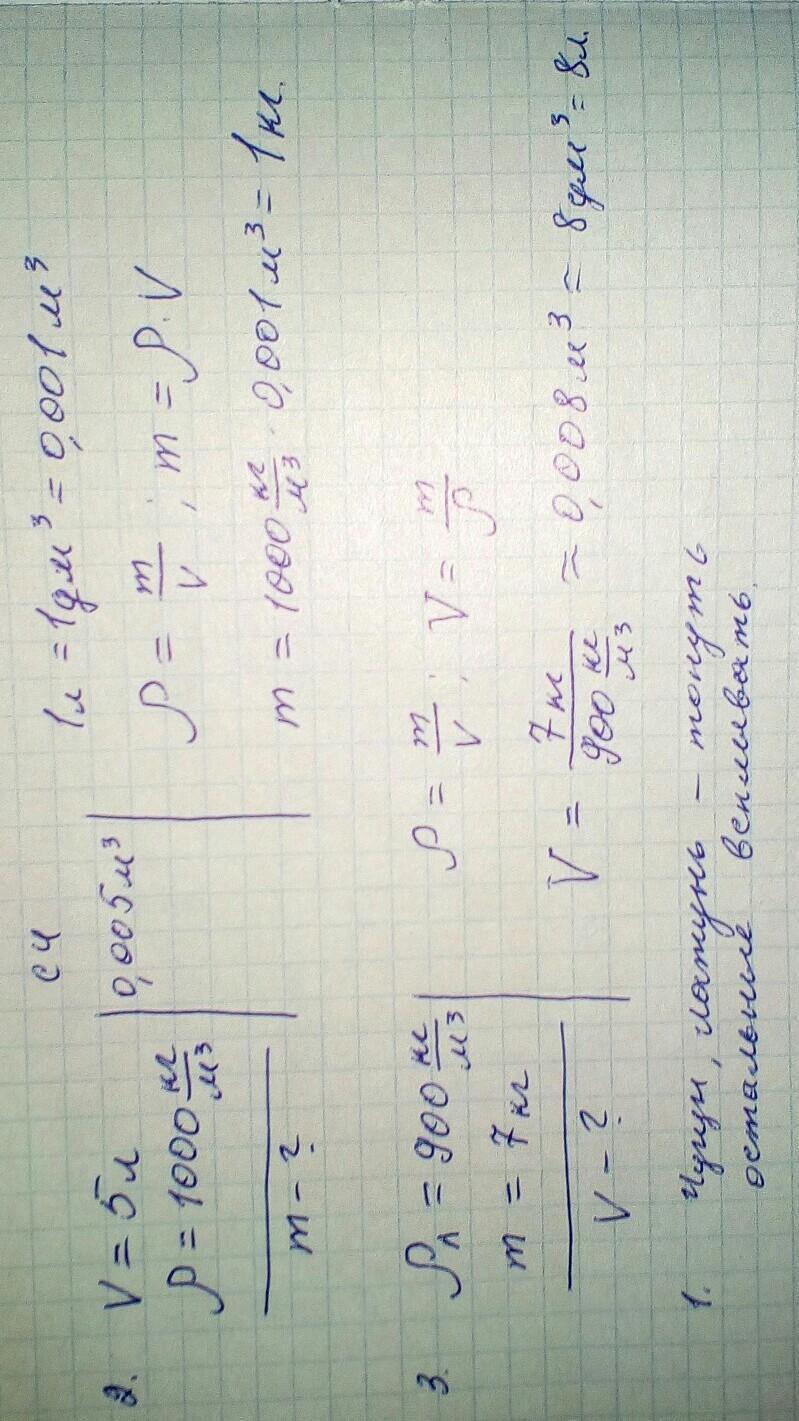 СИ
2. V = 5л | 0,005м³ | 1л = 1дм³ = 0,001м³
ρ = 1000 кг/м³
ρ = m/V ; m = ρ·V
m - ?
m = 1000 кг/м³ · 0,001м³ = 1кг.
3. ρл = 900 кг/м³
ρ = m/V ; V = m/ρ
m = 7кг
V - ?
V = 7кг / 900 кг/м³ ≈ 0,008м³ = 8дм³ = 8л.
1. Чугун, латунь - тонуть
остальные всплывать.